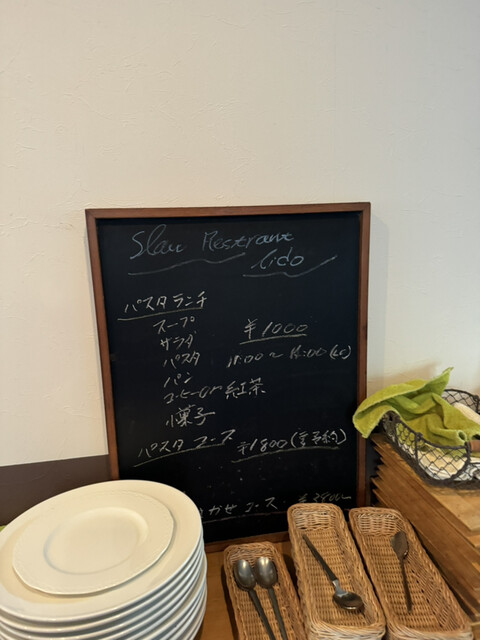 Slow Restrant
lido
パスタランチ
スープ
サラダ ¥1000
パスタ 11:00〜
パン
コーヒーor紅茶
小菓子
パスタコース ¥1800(要予約)
かせコース